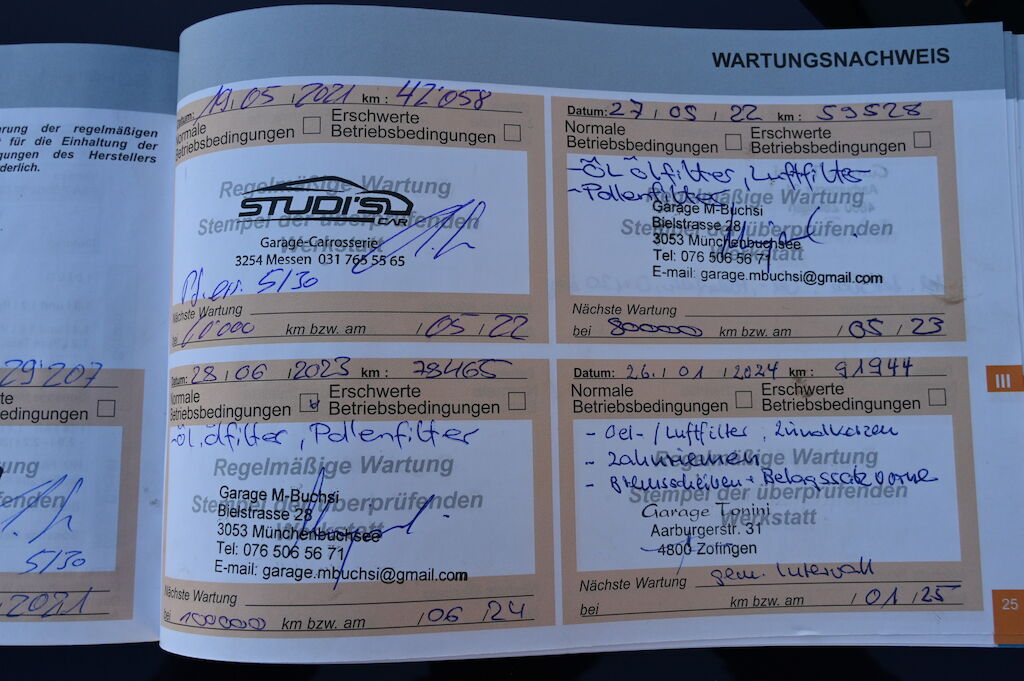 WARTUNGSNACHWEIS
erung der regelmäßigen
für die Einhaltung der
gungen des Herstellers
derlich.
29'207
te
edingungen
ung
fenden
5/30
2021
Datum: 19 / 05 / 2021 km: 42'058
Normale Betriebsbedingungen
Erschwerte Betriebsbedingungen
Regelmäßige Wartung
Stempel der überprüfenden
Werkstatt
STUDI'S
CAR
Garage-Carrosserie
3254 Messen 031 765 55 65
5/30
Nächste Wartung
bei 60'000 km bzw. am / 05 / 22
Datum: 27 / 05 / 22 km: 59528
Normale Betriebsbedingungen
Erschwerte Betriebsbedingungen
- Öl Ölfilter, Luftfilter
- Pollenfilter
Regelmäßige Wartung
Stempel der überprüfenden
Werkstatt
Garage M-Buchsi
Bielstrasse 28
3053 Münchenbuchsee
Tel: 076 506 56 71
E-mail: garage.mbuchsi@gmail.com
Nächste Wartung
bei 80000 km bzw. am / 05 / 23
Datum: 28 / 06 / 2023 km: 78465
Normale Betriebsbedingungen
Erschwerte Betriebsbedingungen
- Öl, Ölfilter, Pollenfilter
Regelmäßige Wartung
Stempel der überprüfenden
Werkstatt
Garage M-Buchsi
Bielstrasse 28
3053 Münchenbuchsee
Tel: 076 506 56 71
E-mail: garage.mbuchsi@gmail.com
Nächste Wartung
bei 100000 km bzw. am / 06 / 24
Datum: 26 / 01 / 2024 km: 91944
Normale Betriebsbedingungen
Erschwerte Betriebsbedingungen
- Oel- / Luftfilter, Zündkerzen
- Zahnriemen
- Bremsscheiben + Belagssatz vorne
Regelmäßige Wartung
Stempel der überprüfenden
Werkstatt
Garage Tonini
Aarburgerstr. 31
4800 Zofingen
Nächste Wartung gem. Intervall
bei km bzw. am / 01 / 25
III
25